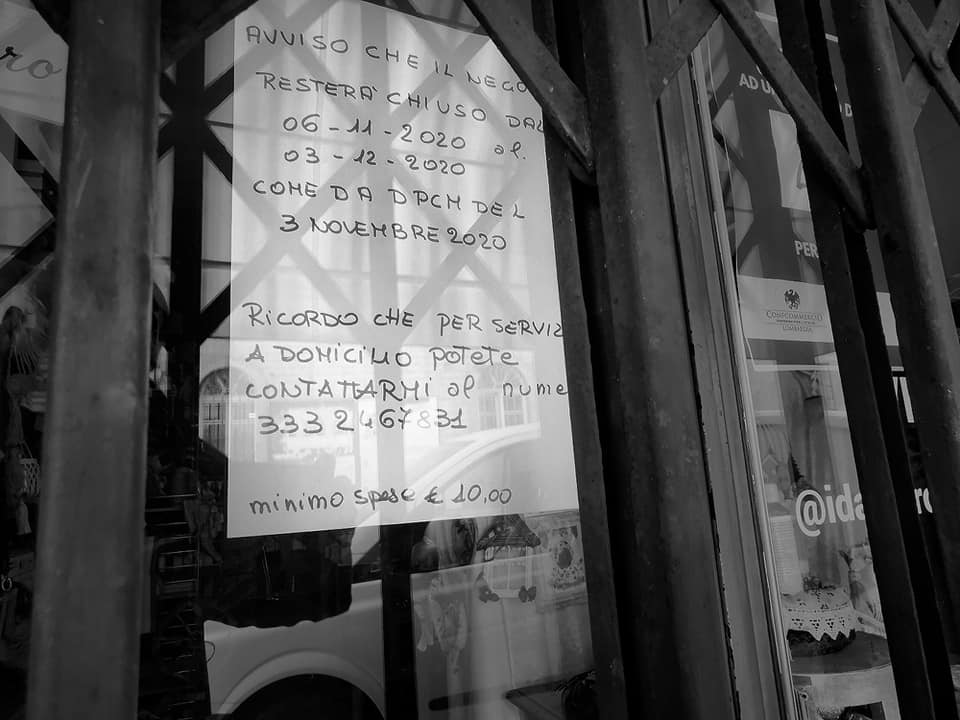 AVVISO CHE IL NEGO
RESTERÀ CHIUSO DAL
06-11-2020 al.
03-12-2020
COME DA DPCM DEL
3 NOVEMBRE 2020
RICORDO CHE PER SERVIZ
A DOMICILIO potete
CONTATTARMI al nume
333 2467831
minimo spese € 10,00
ro
AD U
D
PER
CONFCOMMERCIO
LOMBARDIA
@ida